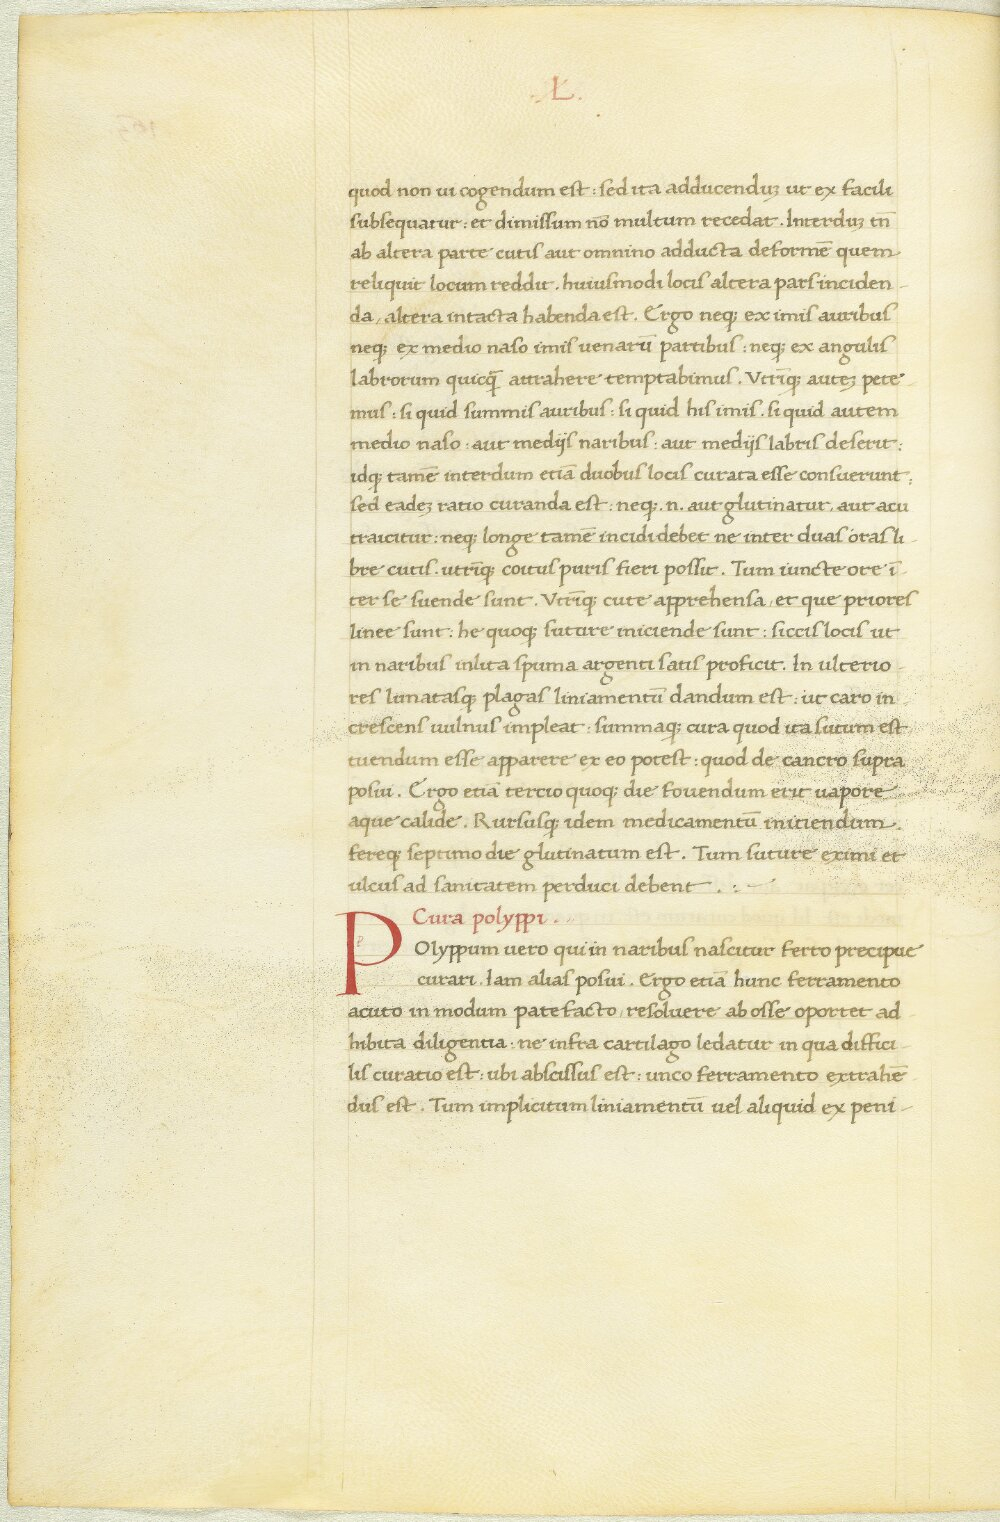 .L.
quod non ui cogendum est : sed ita adducenduʒ ut ex facili
subsequatur : et dimissum nō multum recedat . Interduʒ tn̄
ab altera parte cutis aut omnino adducta deformē quem
reliquit locum reddit . huiusmodi locis altera pars inciden-
da , altera intacta habenda est . Ergo neqꝫ ex imis auribus
neqꝫ ex medio naso imis uenarū partibus : neqꝫ ex angulis
labrorum quicq̄ attrahere temptabimus . Vtrīqꝫ auteʒ pete-
mus : si quid summis auribus : si quid his imis . si quid autem
medio naso : aut medijs naribus : aut medijs labris deserit :
idqꝫ tamē interdum etiā duobus locis curata esse consuerunt :
sed eadeʒ ratio curanda est : neqꝫ . n . aut glutinatur , aut acu
traicitur : neqꝫ longe tamē incidi debet ne inter duas oras li-
bre cutis . utrīqꝫ coitus puris fieri possit . Tum iuncte ore ī-
ter se suende sunt . Vtrīqꝫ cute apprehensa , et que priores
linee sunt : he quoqꝫ suture iniciende sunt : siccis locis ut
in naribus inlita spuma argenti satis proficit . In ulterio-
res lunatasqꝫ plagas liniamentū dandum est : ut caro in-
crescens uulnus impleat : summaqꝫ cura quod ita sutum est
tuendum esse apparere ex eo potest : quod de cancro supra
posui . Ergo etiā tercio quoqꝫ die fouendum erit uapore
aque calide . Rursusqꝫ idem medicamentū iniciendum .
fereqꝫ septimo die glutinatum est . Tum suture eximi et
ulcus ad sanitatem perduci debent . : —
Cura polyppi . .
POlyppum uero qui in naribus nascitur ferro precipue
curari . Iam alias posui . Ergo etiā hunc ferramento
acuto in modum patefacto , resoluere ab osse oportet ad
hibita diligentia : ne infra cartilago ledatur in qua diffici-
lis curatio est : ubi abscissus est : unco ferramento extrahē-
dus est . Tum implicitum liniamentū uel aliquid ex peni-